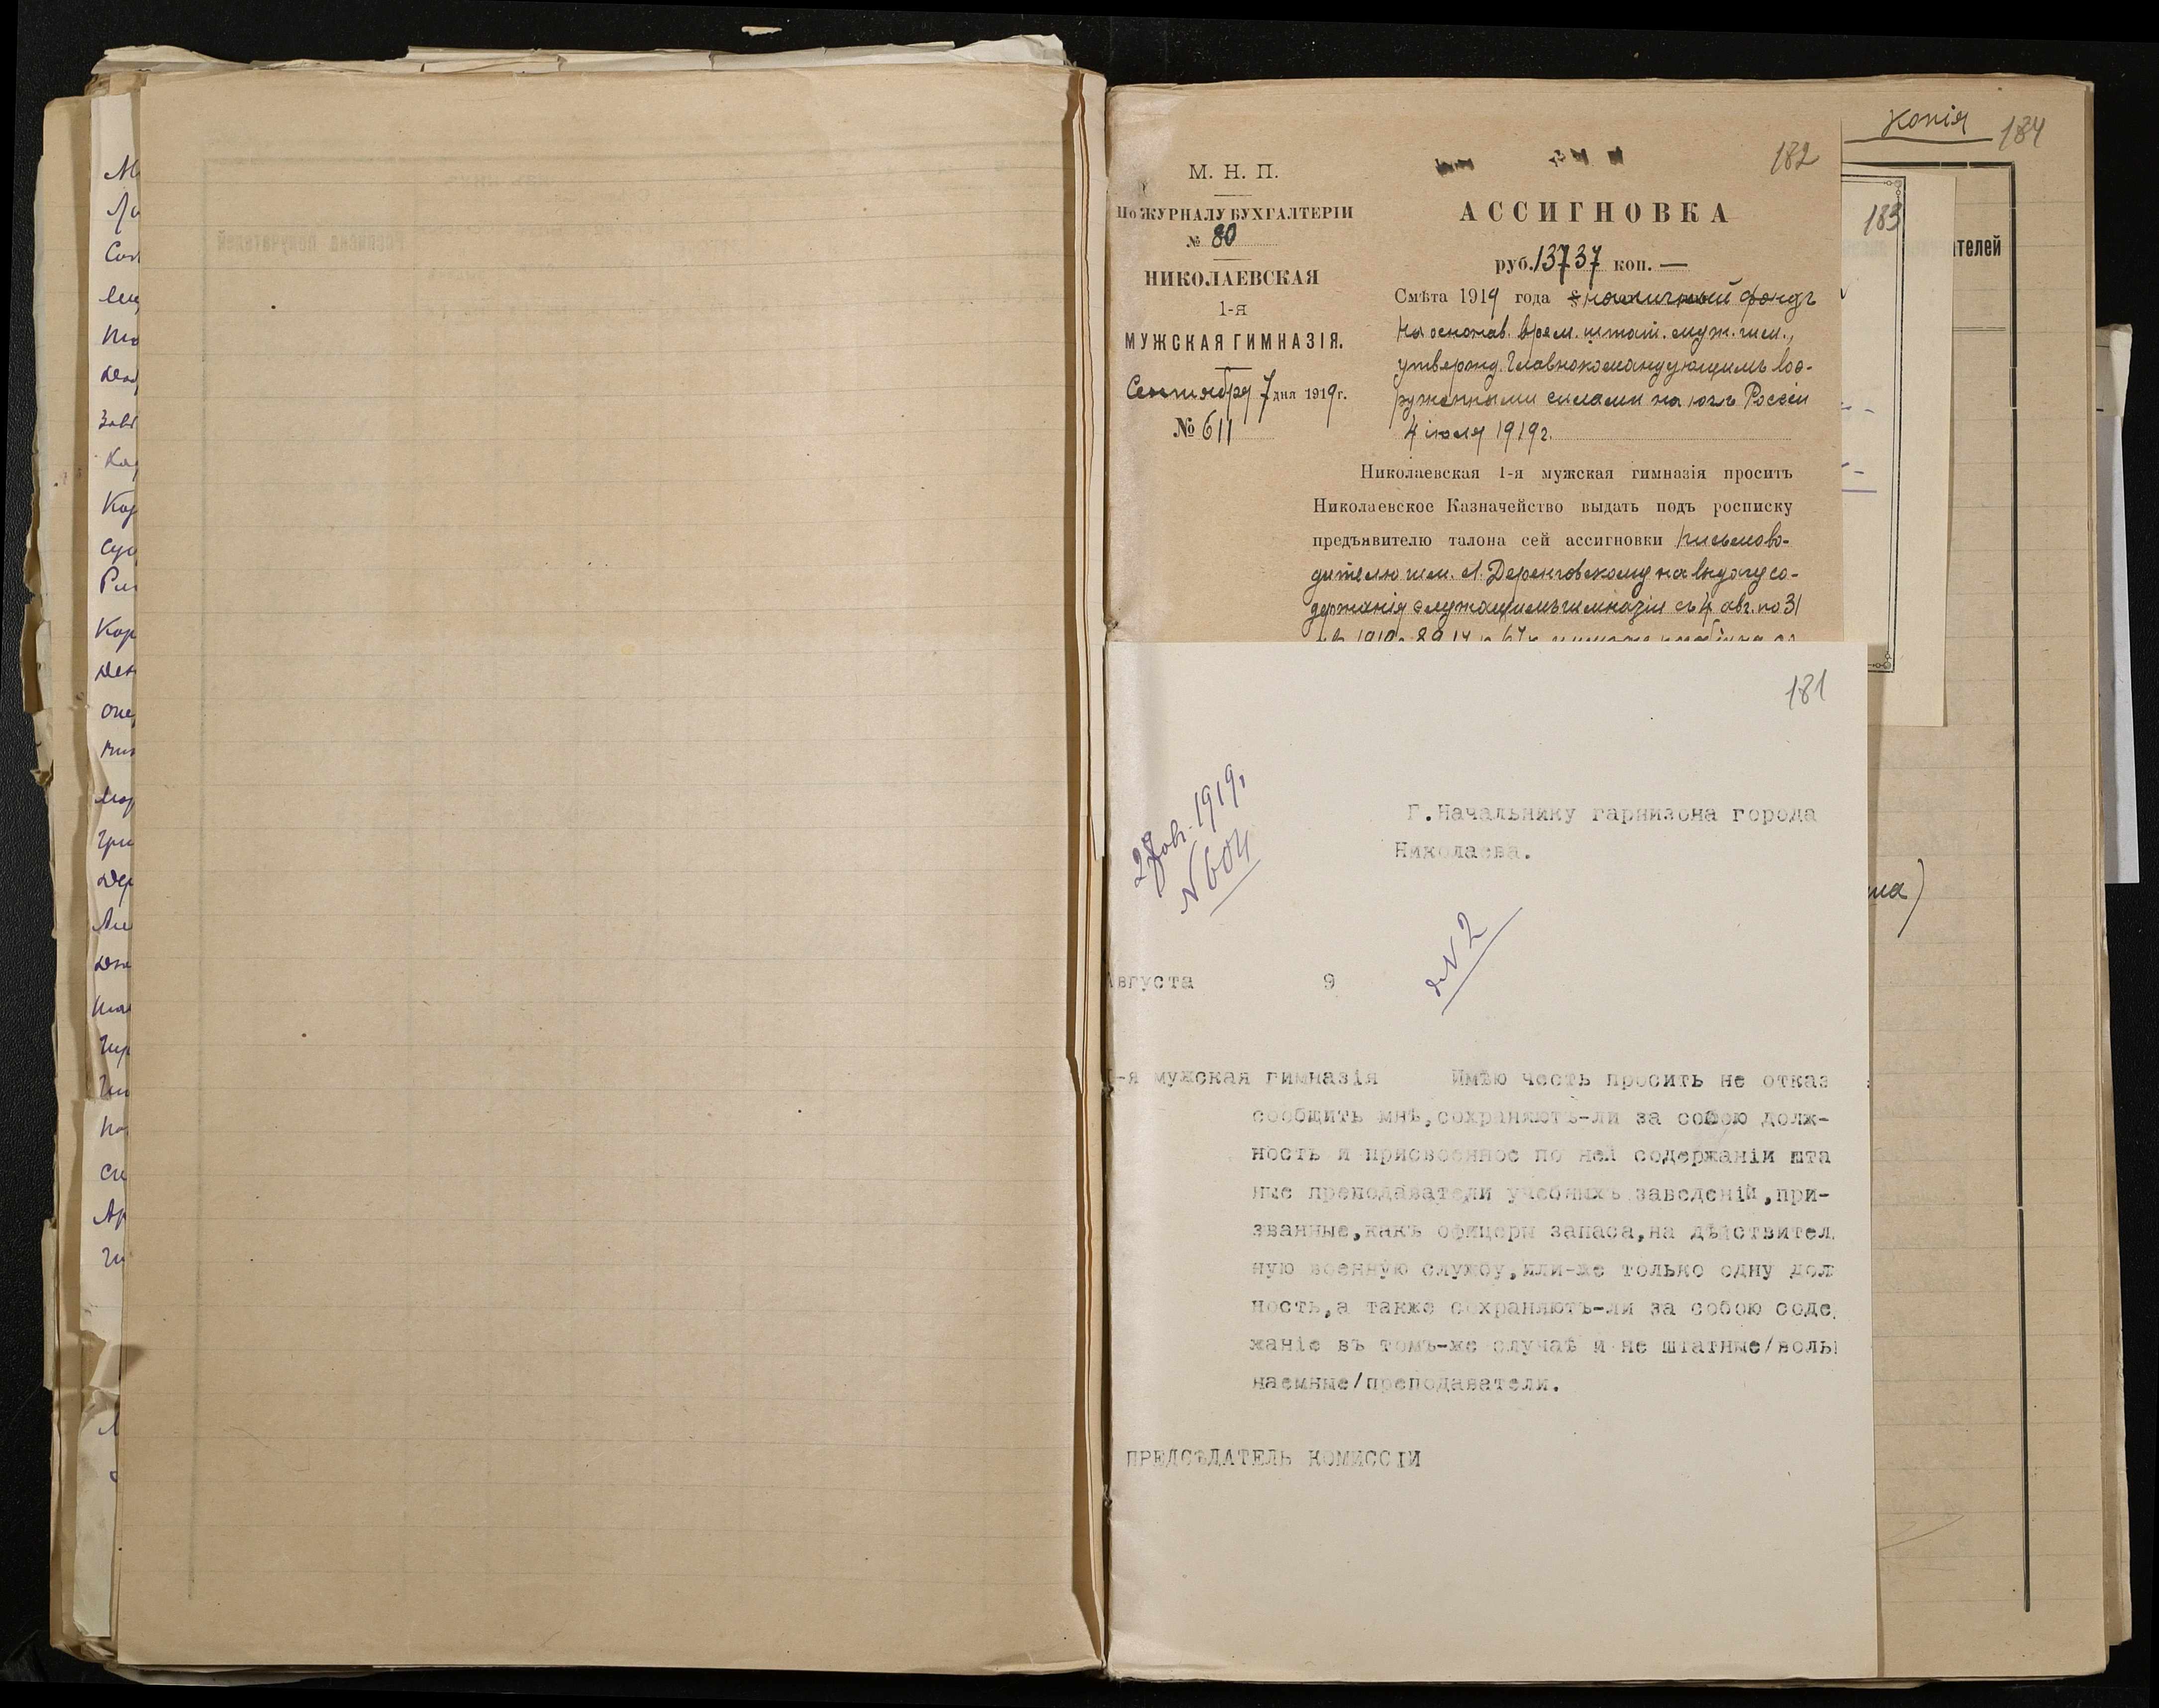 Копія
184
183
ателей
182
М. Н. П.
По ЖУРНАЛУ БУХГАЛТЕРІИ
№ 80
НИКОЛАЕВСКАЯ
1-я
МУЖСКАЯ ГИМНАЗІЯ.
Сентября 7 дня 1919 г.
№ 611
АССИГНОВКА
руб. 13737 коп. —
Смѣта 1919 года § наличный фондъ
На основ. врем. штат. муж. гим.,
утвержд. Главнокомандующимъ воо-
руженными силами на югѣ Россіи
4 іюля 1919 г.
Николаевская 1-я мужская гимназія проситъ
Николаевское Казначейство выдать подъ росписку
предъявителю талона сей ассигновки письмово-
дителю гим. А. Деренговскому на выдачу со-
держанія служащимъ гимназіи съ 4 авг. по 31
181
28 авг. 1919 г.
№ 604
Г.Начальнику гарнизона города
Николаева.
д № 2
Августа 9
-я мужская гимназія Имѣю честь просить не отказ
сообщить мнѣ,сохраняютъ-ли за собою долж-
ность и присвоенное по ней содержаніи шта
ные преподаватели учебныхъ заведеній,при-
званные,какъ офицеры запаса,на дѣйствител
ную военную службу,или-же только одну дол
ность,а также сохраняютъ-ли за собою соде
жаніе въ томъ-же случаѣ и не штатные/воль
наемные/преподаватели.
ПРЕДСѢДАТЕЛЬ КОМИССІИ